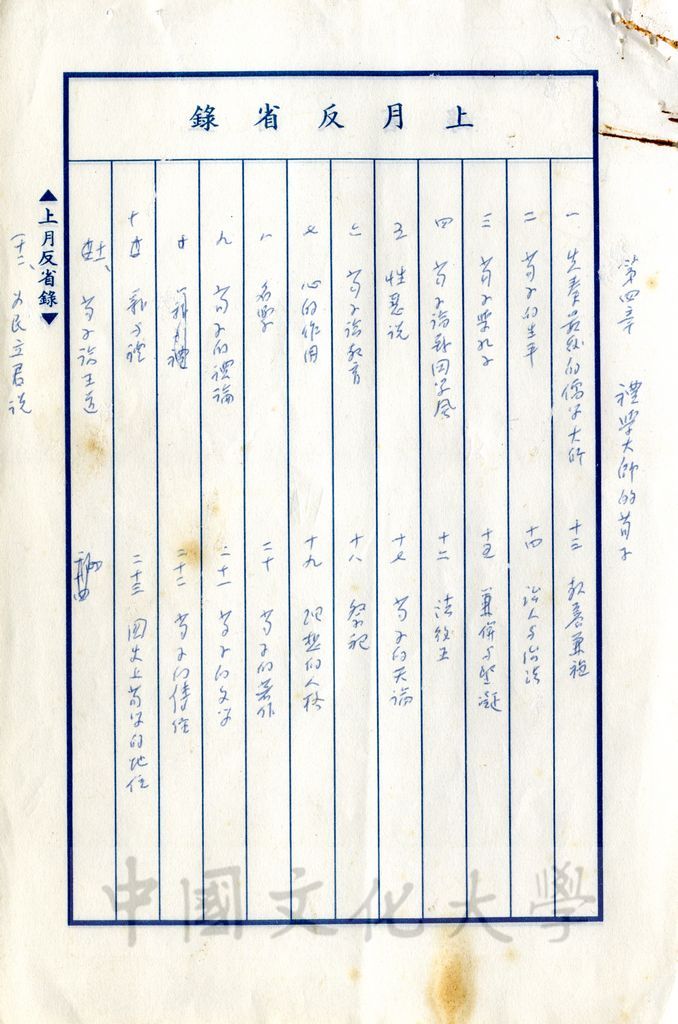 上月反省錄
第四章 禮學大師的荀子
一 先秦最後的儒學大師
二 荀子的生平
三 荀子與孔子
四 荀子論戰國學風
五 性惡說
六 荀子論教育
七 心的作用
八 名學
九 荀子的禮論
十
十 群與禮
十一、 荀子論王道
十二、 為民立君說
十三 教養兼施
十四 治人與治法
十五 兼併與堅凝
十六 法後王
十七 荀子的天論
十八 祭祀
十九 理想的人格
二十 荀子的著作
二十一 荀子的文學
二十二 荀子的傳經
二十三 國史上荀學的地位
▲上月反省錄▼
中國文化大學